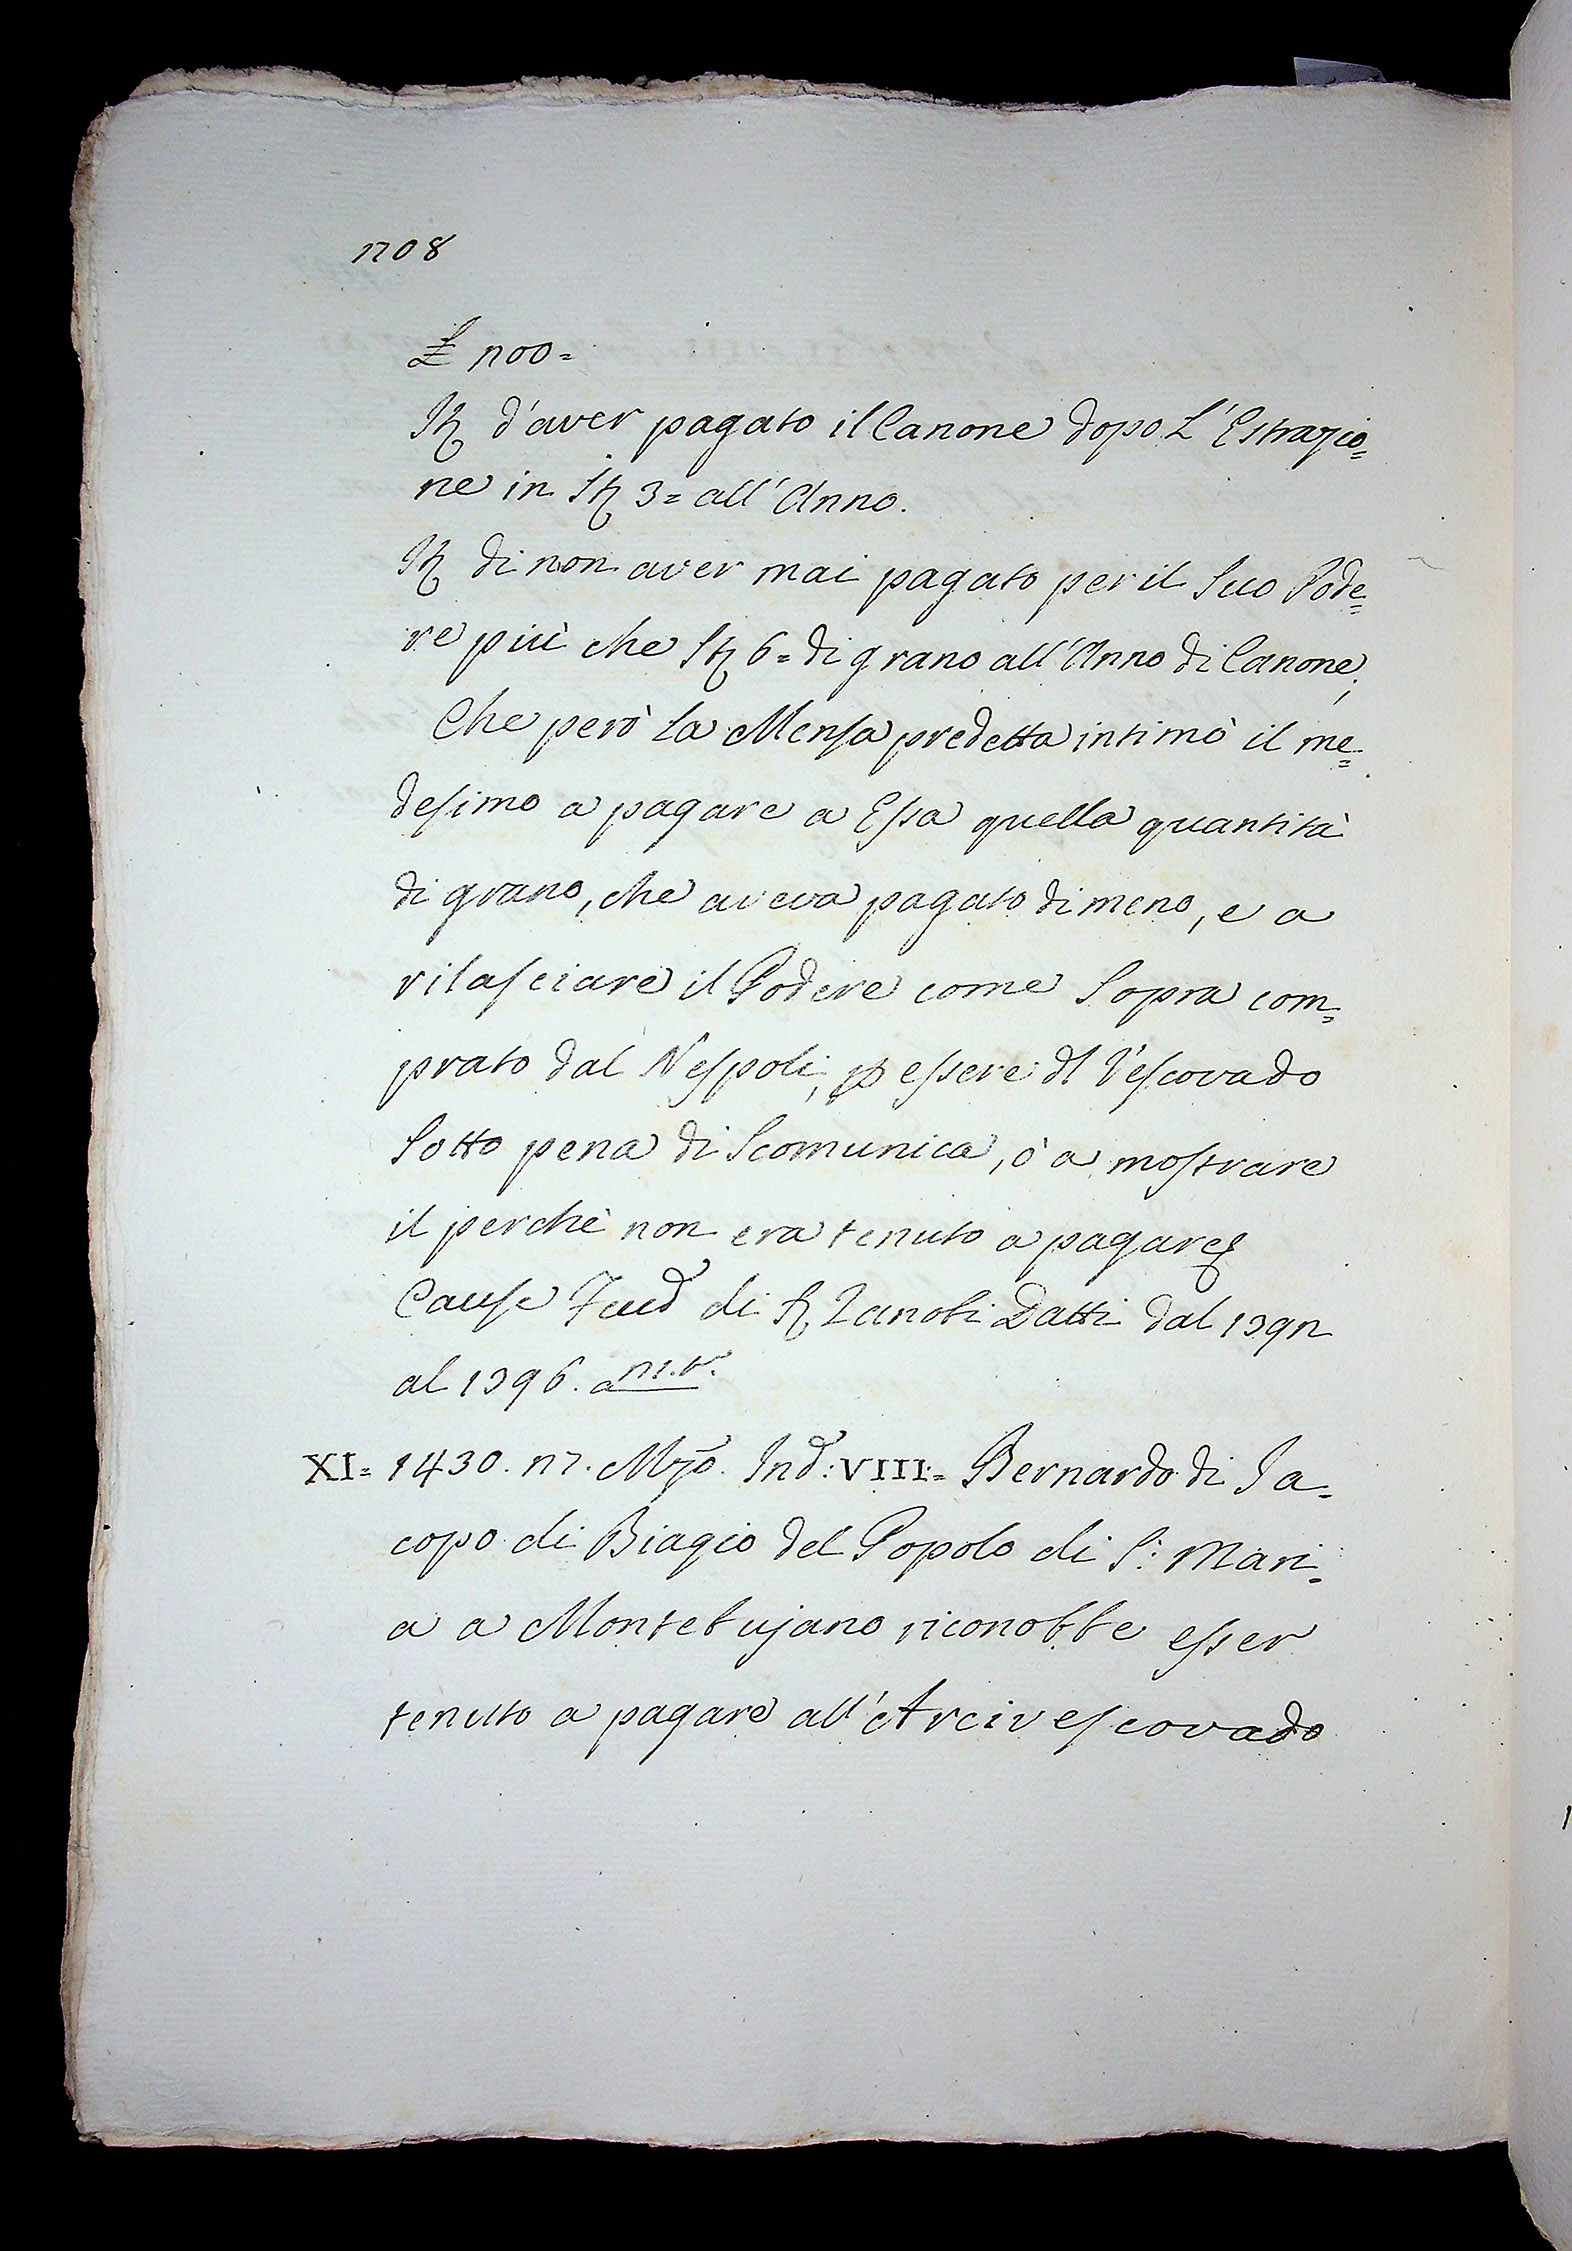 1708
£ 100=
Itt d'aver pagato il Canone dopo L'Estrazio=
ne in St 3= all'Anno.
Itt di non aver mai pagato per il Suo Pode=
re più che St 6= di grano all'Anno di Canone;
Che però La Mensa predetta intimò il me=
desimo a pagare a Essa quella quantità
di grano, che aveva pagato di meno, e a
rilasciare il Podere come Sopra com=
prato dal Nespoli, p essere dl Vescovado
Sotto pena di Scomunica, ò a mostrare
il perchè non era tenuto a pagare
Cause Feud di S Zanobi Datti dal 1391
al 1396. a
XI= 1430. 17. Mzo. Ind: VIII:= Bernardo di Ja=
copo di Biagio del Popolo di S: Mari=
a a Montebujano riconobbe esser
tenuto a pagare all'Arcivescovado